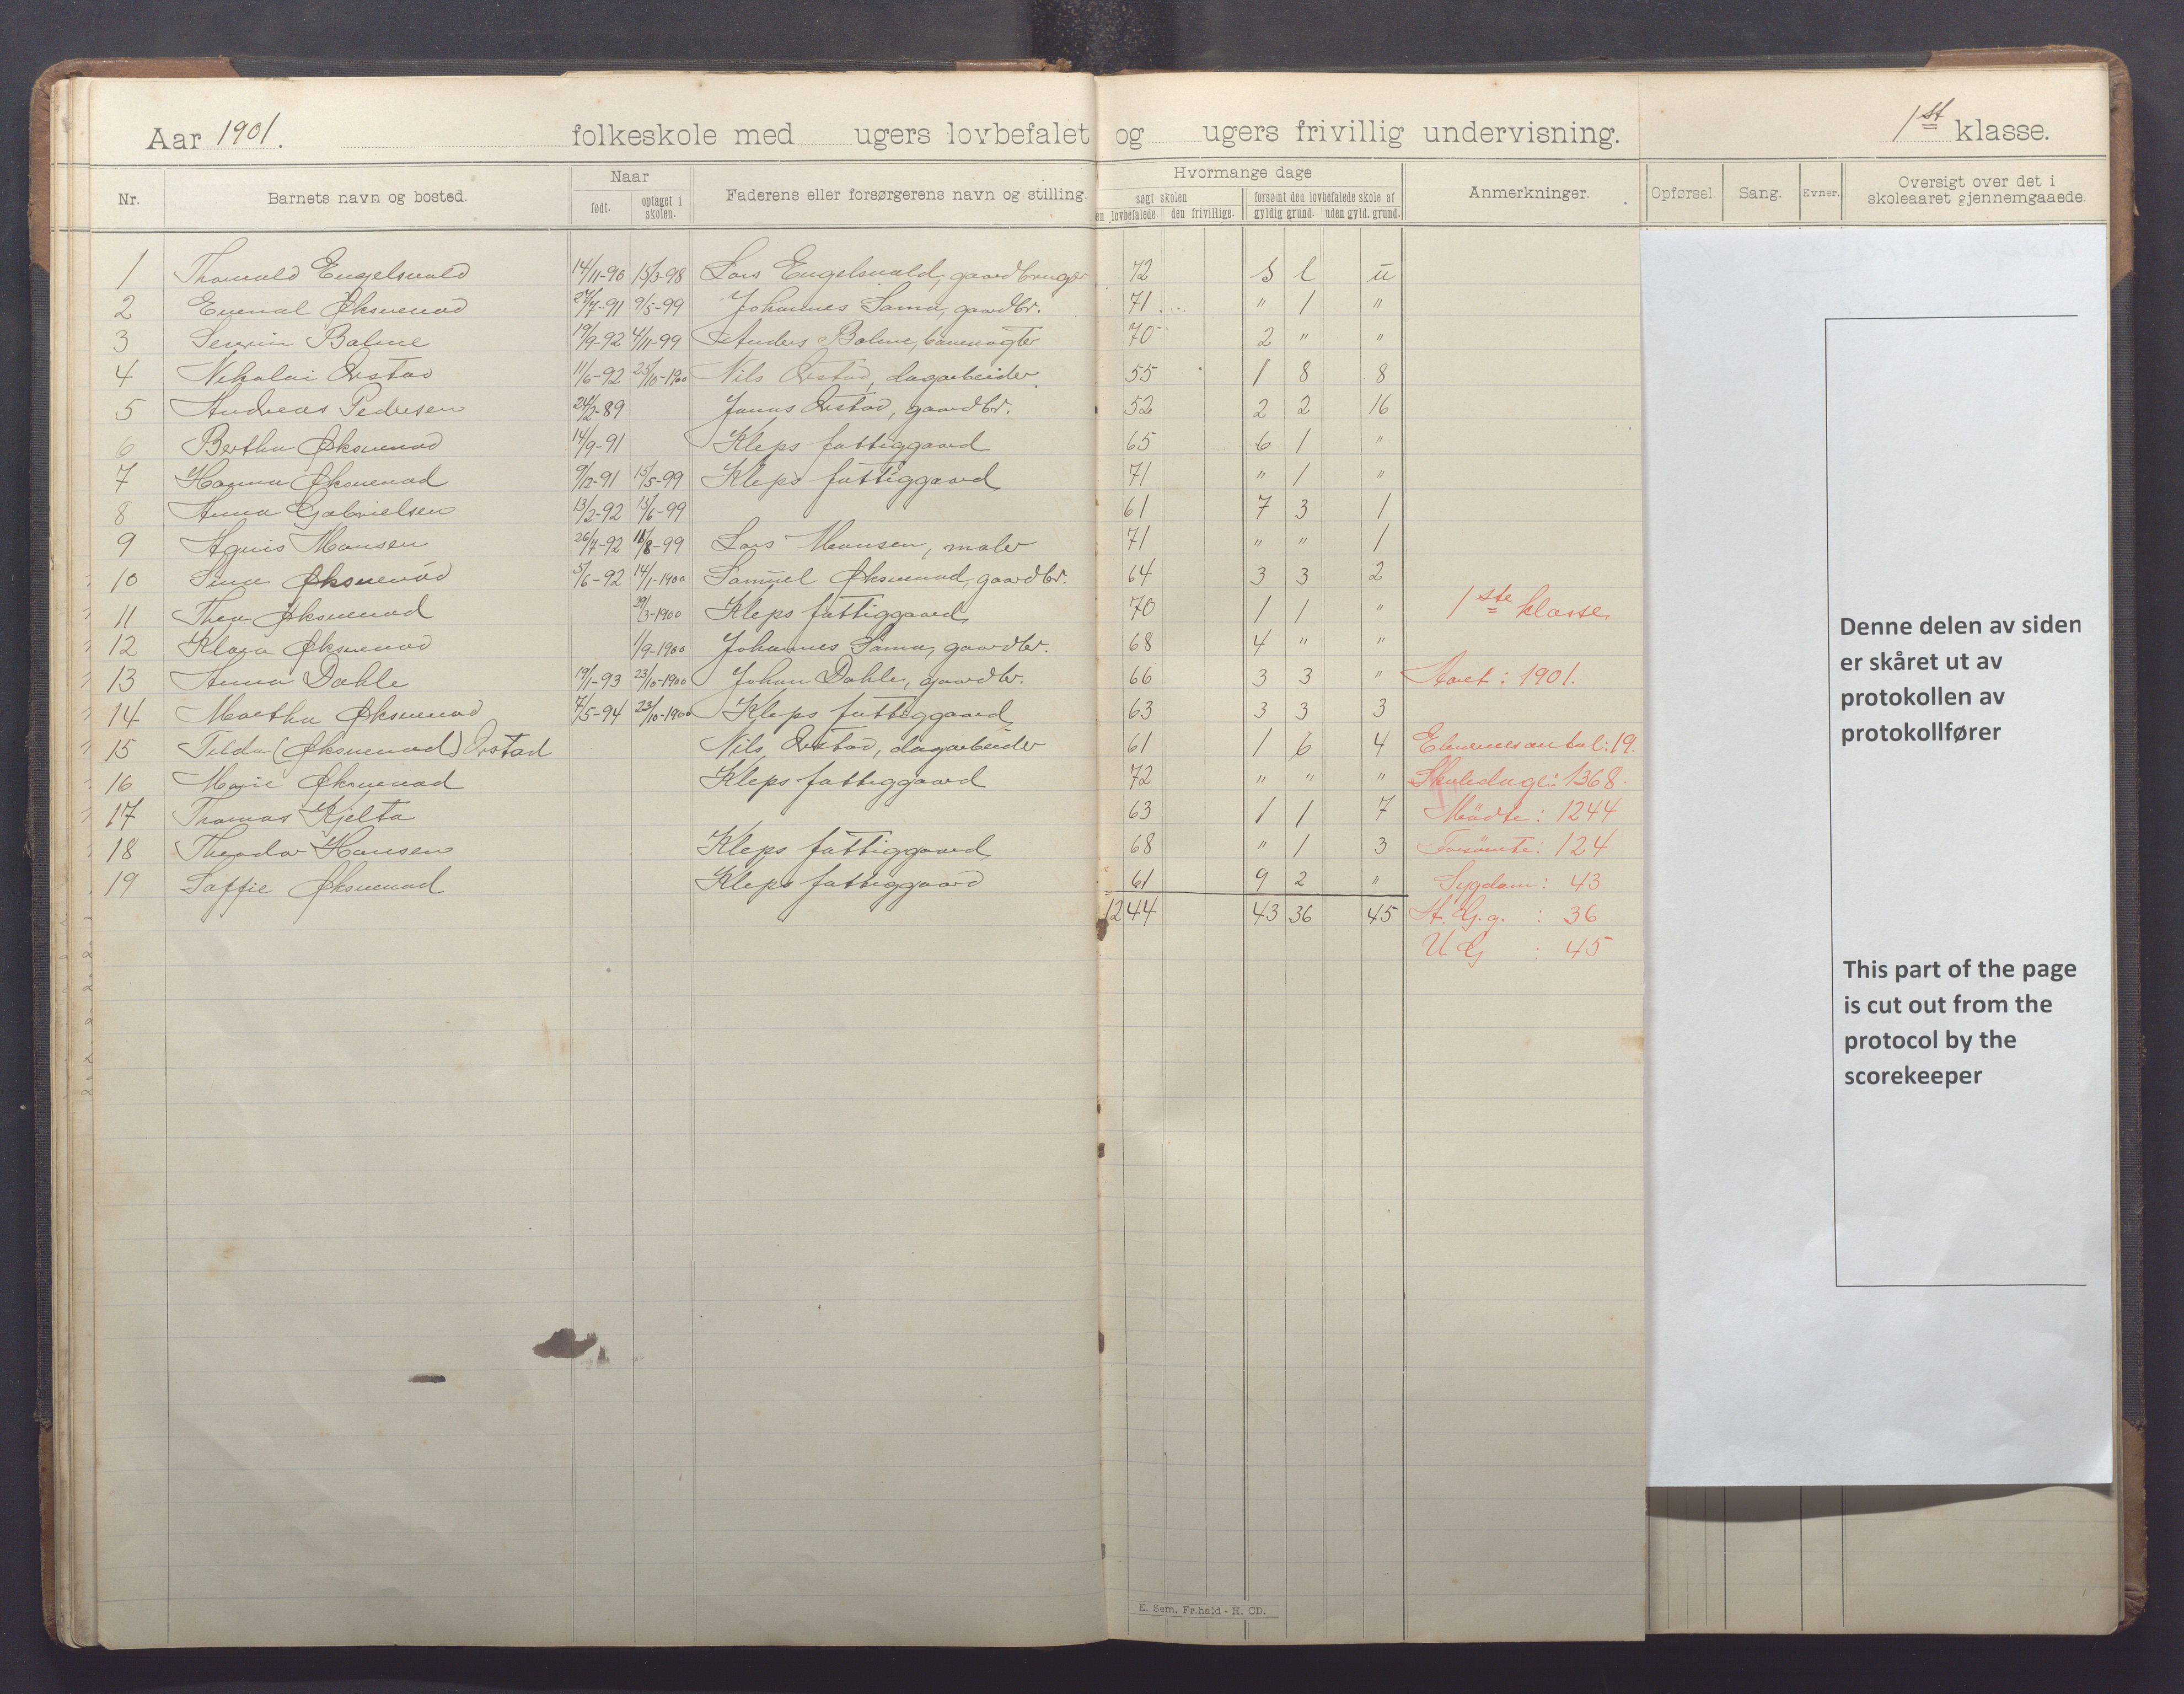 Aar 1901. folkeskole med ugers lovbefalet og ugers frivillig undervisning. 1st klasse.
Nr. Barnets navn og bosted. Naar født. optaget i skolen. Faderens eller forsørgerens navn og stilling. Hvormange dage søgt skolen den lovbefalede. den frivillige. forsømt den lovbefalede skole af gyldig grund. uden gyld. grund. Anmerkninger. Opførsel. Sang. Evner. Oversigt over det i skoleaaret gjennemgaaede.
1 Thorvald Engelsvold 14/11-90 15/3-98 Lars Engelsvold, gaardbruger 72 s l u
2 Enevald Øksnevad 27/7-91 9/5-99 Johannes Sama, gaardbr. 71 " 1 "
3 Severin Bolme 19/9-92 4/11-99 Anders Bolme, banevogter 70 2 " "
4 Nikolai Orstad 11/6-92 23/10-1900 Nils Orstad, dagarbeider 55 1 8 8
5 Andreas Pedersen 24/2-89 Jonas Orstad, gaardbr. 52 2 2 16
6 Bertha Øksnevad 14/9-91 Kleps fattiggaard 65 6 1 "
7 Hanna Øksnevad 9/12-91 15/5-99 Kleps fattiggaard 71 " 1 "
8 Anna Gabrielsen 13/2-92 15/6-99 61 7 3 1
9 Agnis Monsen 26/7-92 18/8-99 Lars Monsen, maler 71 " " 1
10 Sina Øksnevad 5/6-92 14/1-1900 Samuel Øksnevad, gaardbr. 64 3 3 2
11 Thea Øksnevad 29/3-1900 Kleps fattiggaard 70 1 1 " 1ste klasse
12 Klara Øksnevad 1/9-1900 Johannes Sama, gaardbr. 68 4 " "
13 Anna Dahle 19/1-93 23/10-1900 Johan Dahle, gaardbr. 66 3 3 " Aaret: 1901.
14 Martha Øksnevad 7/5-94 23/10-1900 Kleps fattiggaard 63 3 3 3
15 Tilda (Øksnevad) Orstad Nils Orstad, dagarbeider 61 1 6 4 Elevernes antal: 19.
16 Marie Øksnevad Kleps fattiggaard 72 " " " Skoledage: 1368.
17 Thomas Kjelta 63 1 1 7 Mødte: 1244
18 Theodor Hansen Kleps fattiggaard 68 " 1 3 Forsømte: 124
19 Saffie Øksnevad Kleps fattiggaard 61 9 2 " Sygdom: 43
1244 43 36 45 A. G. g. : 36
U G : 45
Denne delen av siden
er skåret ut av
protokollen av
protokollfører
This part of the page
is cut out from the
protocol by the
scorekeeper
E. Sem, Fr.hald - H. CD.